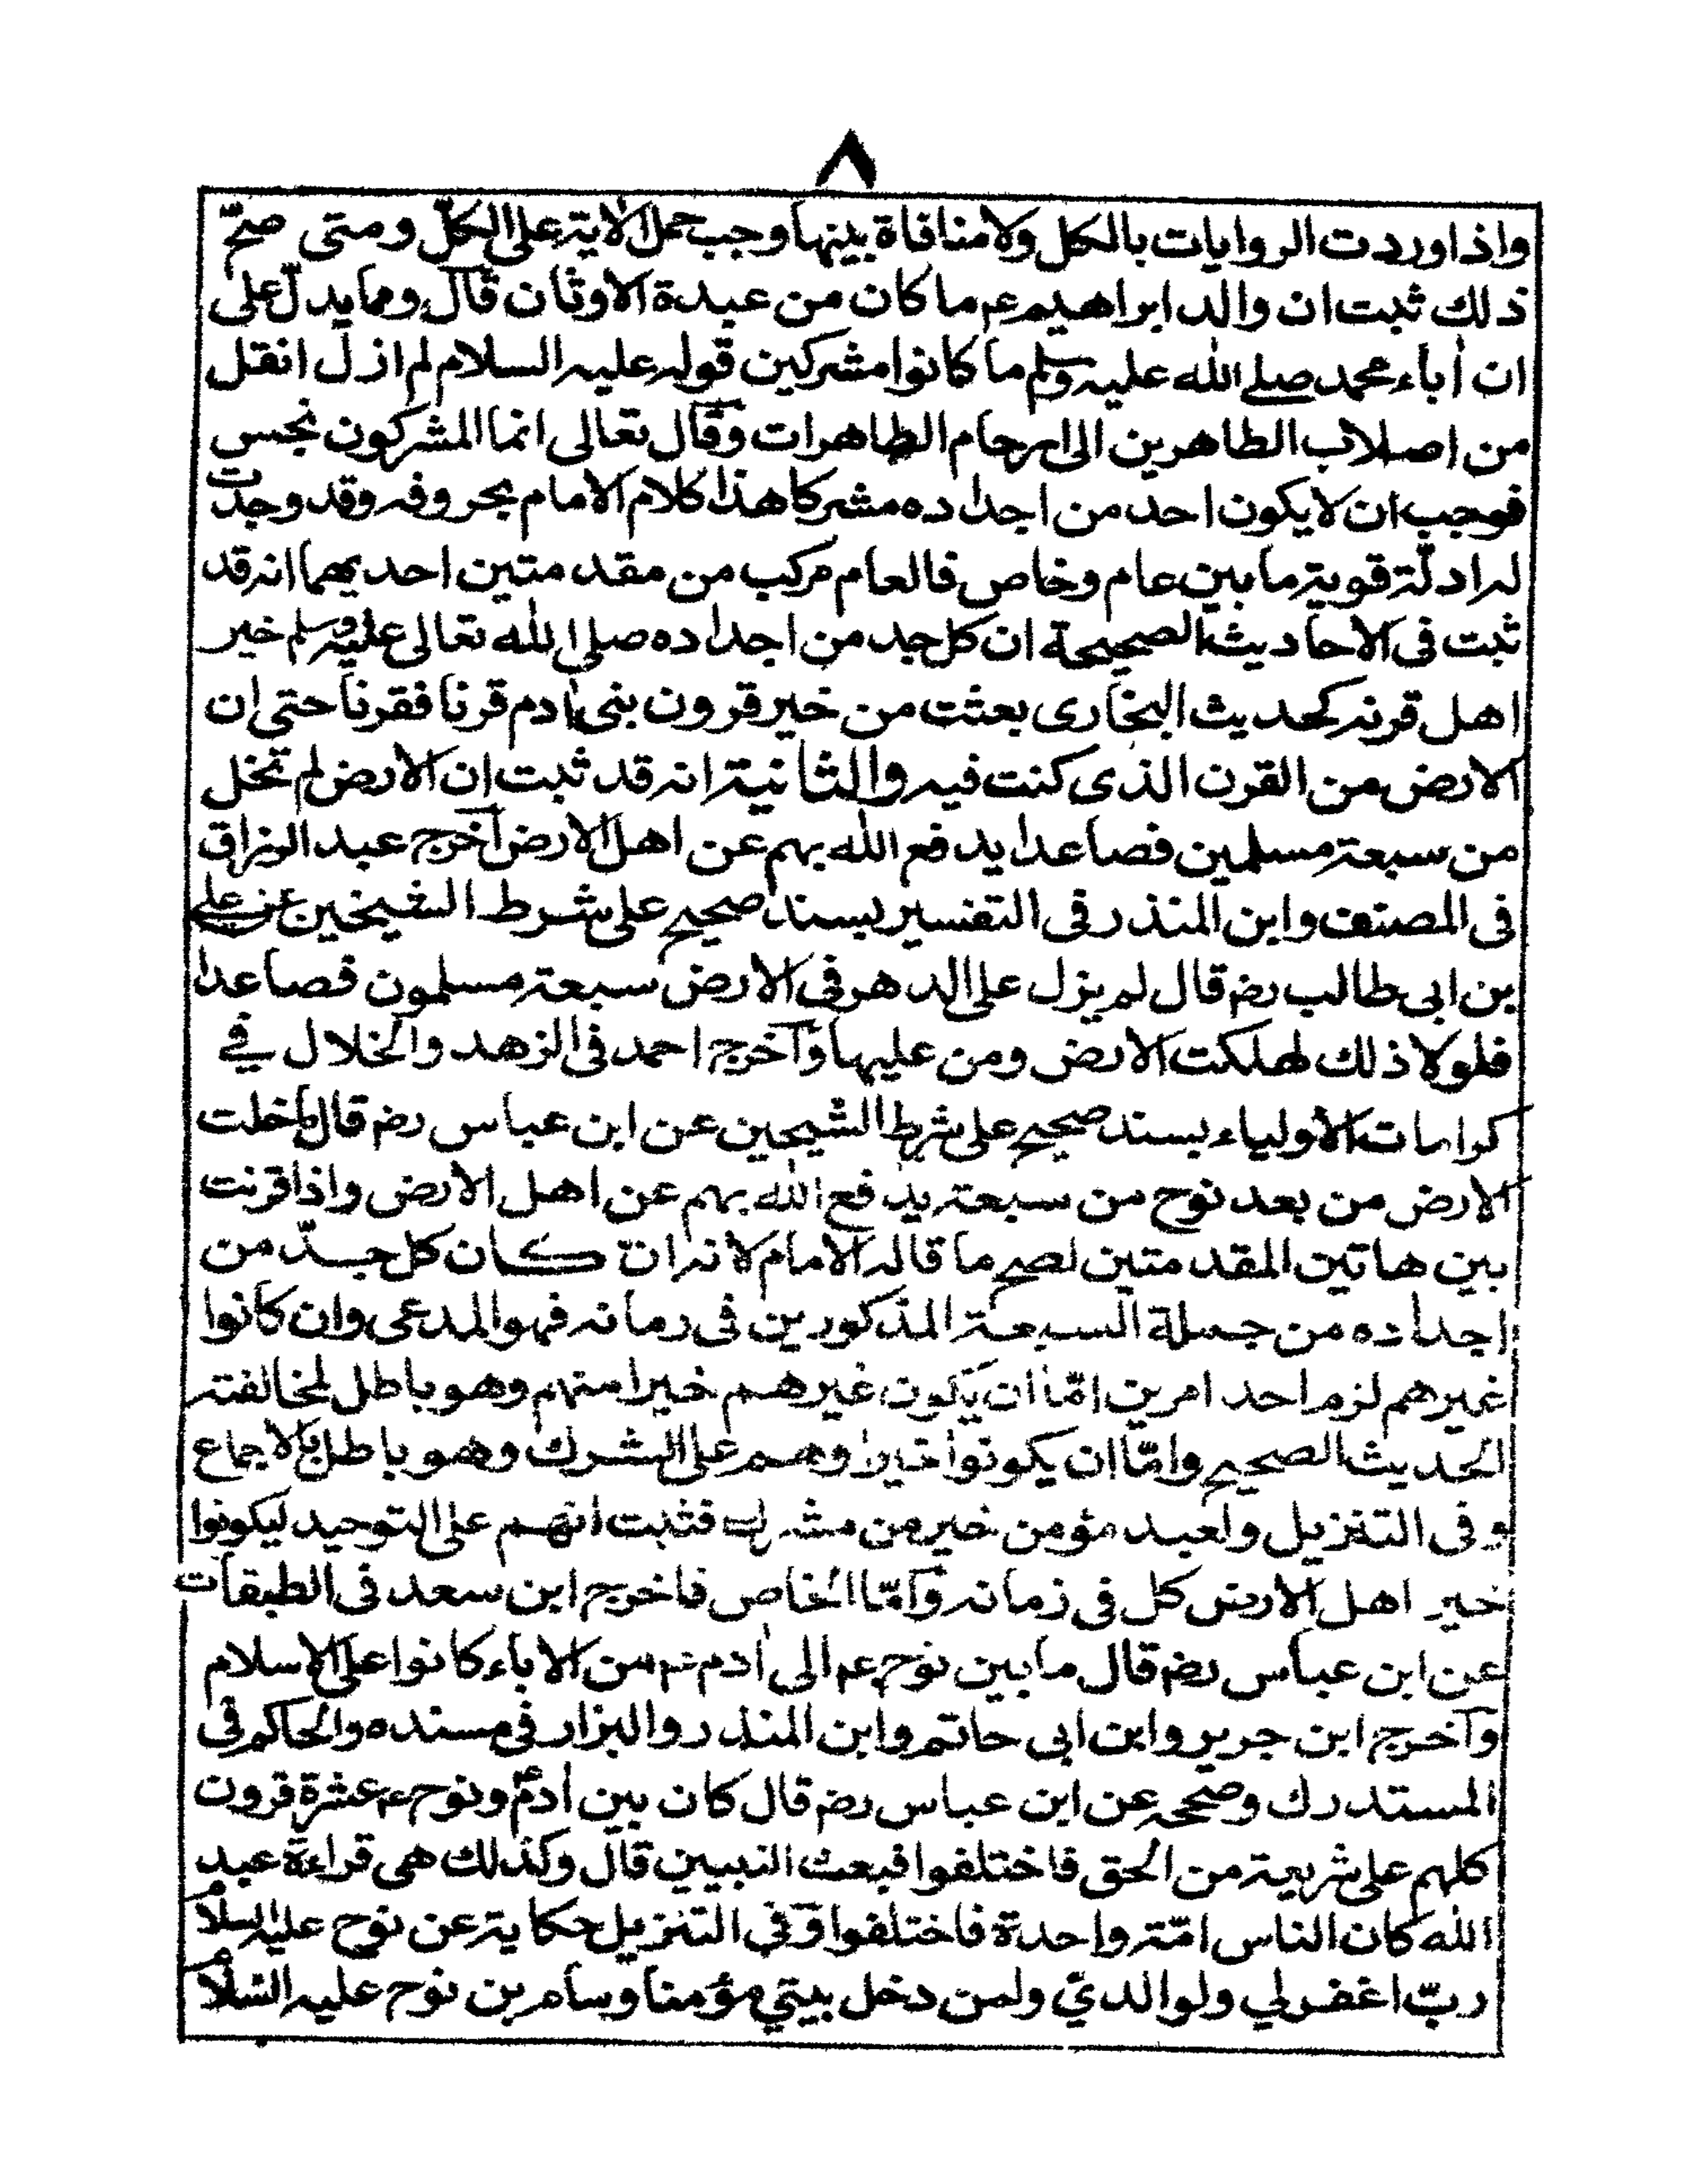 ٨
واذا وردت الروايات بالكل ولا منافاة بينها وجب حمل الاية على الكلّ ومتى صحّ
ذلك ثبت ان والد ابراهيم عم ما كان من عبدة الاوثان قال ومما يدلّ على
ان أباء محمد صلى الله عليه وسلم ما كانوا مشركين قوله عليه السلام لم ازل انقل
من اصلاب الطاهرين الى ارحام الطاهرات وقال تعالى انما المشركون نجس
فوجب ان لا يكون احد من اجداده مشركا هذا كلام الامام بحروفه وقد وجدت
له ادلّة قوية ما بين عام وخاص فالعام مركب من مقدمتين احديهما انه قد
ثبت فى الاحاديث الصحيحة ان كل جد من اجداده صلى الله تعالى عليه وسلم خير
اهل قرنه كحديث البخارى بعثت من خير قرون بنى أدم قرنا فقرنا حتى ان
الارض من القرن الذى كنت فيه والثانية انه قد ثبت ان الارض لم تخل
من سبعة مسلمين فصاعدا يدفع الله بهم عن اهل الارض أخرج عبد الرزاق
فى المصنف وابن المنذر فى التفسير بسند صحيح على شرط الشيخين عن على
بن ابى طالب رضـ قال لم يزل على الدهر فى الارض سبعة مسلمون فصاعدا
فلولا ذلك لهلكت الارض ومن عليها وأخرج احمد فى الزهد والخلال في
كرامات الأولياء بسند صحيح على شرط الشيخين عن ابن عباس رضـ قال ما خلت
الارض من بعد نوح من سبعة يدفع الله بهم عن اهل الارض واذا قرنت
بين هاتين المقدمتين لصح ما قاله الامام لانه ان كان كل جدّ من
اجداده من جملة السبعة المذكورين فى زمانه فهو المدعى وان كانوا
غيرهم لزم احد امرين إمّا ان يكون غيرهم خيرا منهم وهو باطل لمخالفته
الحديث الصحيح وامّا ان يكونوا خيرا وهم على الشرك وهو باطل بالاجماع
وفى التنزيل ولعبد مؤمن خير من مشرك فثبت انهم على التوحيد ليكونوا
خير اهل الارض كل فى زمانه وأمّا الخاص فاخرج ابن سعد فى الطبقات
عن ابن عباس رضـ قال ما بين نوح عم الى أدم عم من الاباء كانوا على الاسلام
وأخرج ابن جرير وابن ابى حاتم وابن المنذر والبزار فى مسنده والحاكم فى
المستدرك وصححه عن ابن عباس رضـ قال كان بين أدم ونوح عم عشرة قرون
كلهم على شريعة من الحق فاختلفوا فبعث النبيين قال وكذلك هى قراءة عبد
الله كان الناس امّة واحدة فاختلفوا وفى التنزيل حكاية عن نوح عليه السلام
ربّ اغفر لي ولوالديّ ولمن دخل بيتي مؤمنا وسام بن نوح عليه السّلام